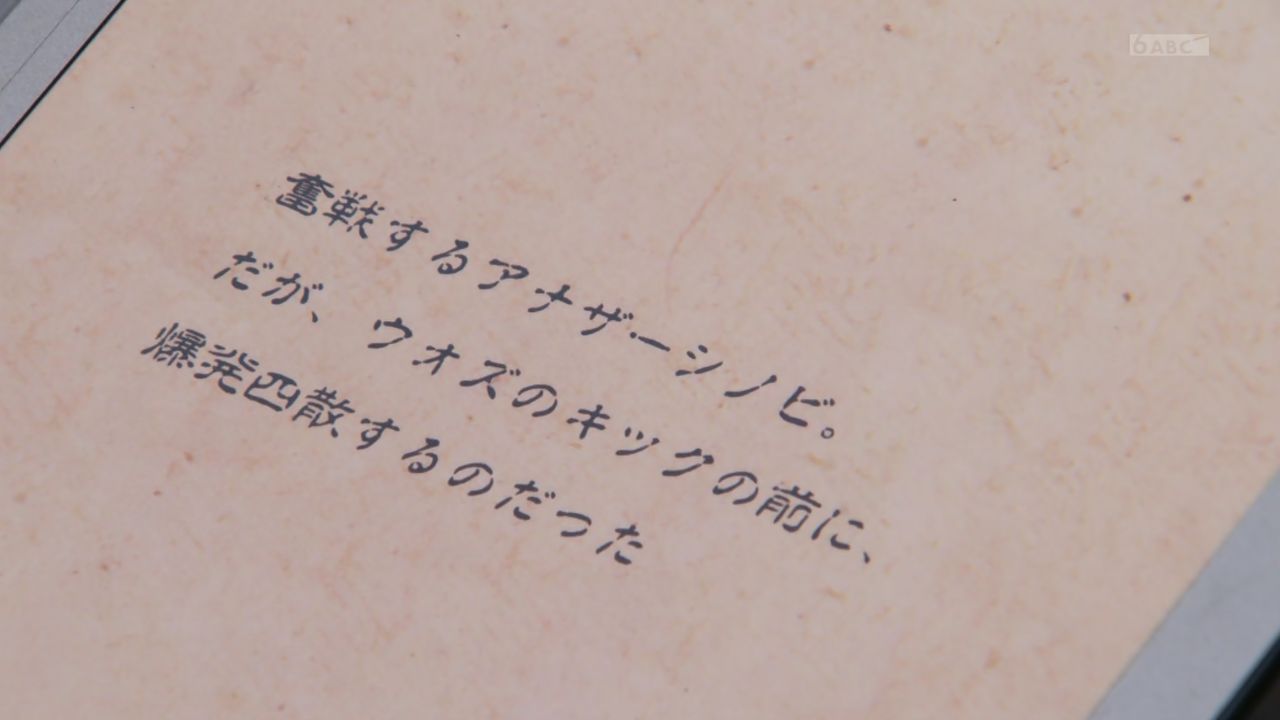 6ABC
奮戦するアナザーシノビ。
だが、ウオズのキックの前に、
爆発四散するのだった